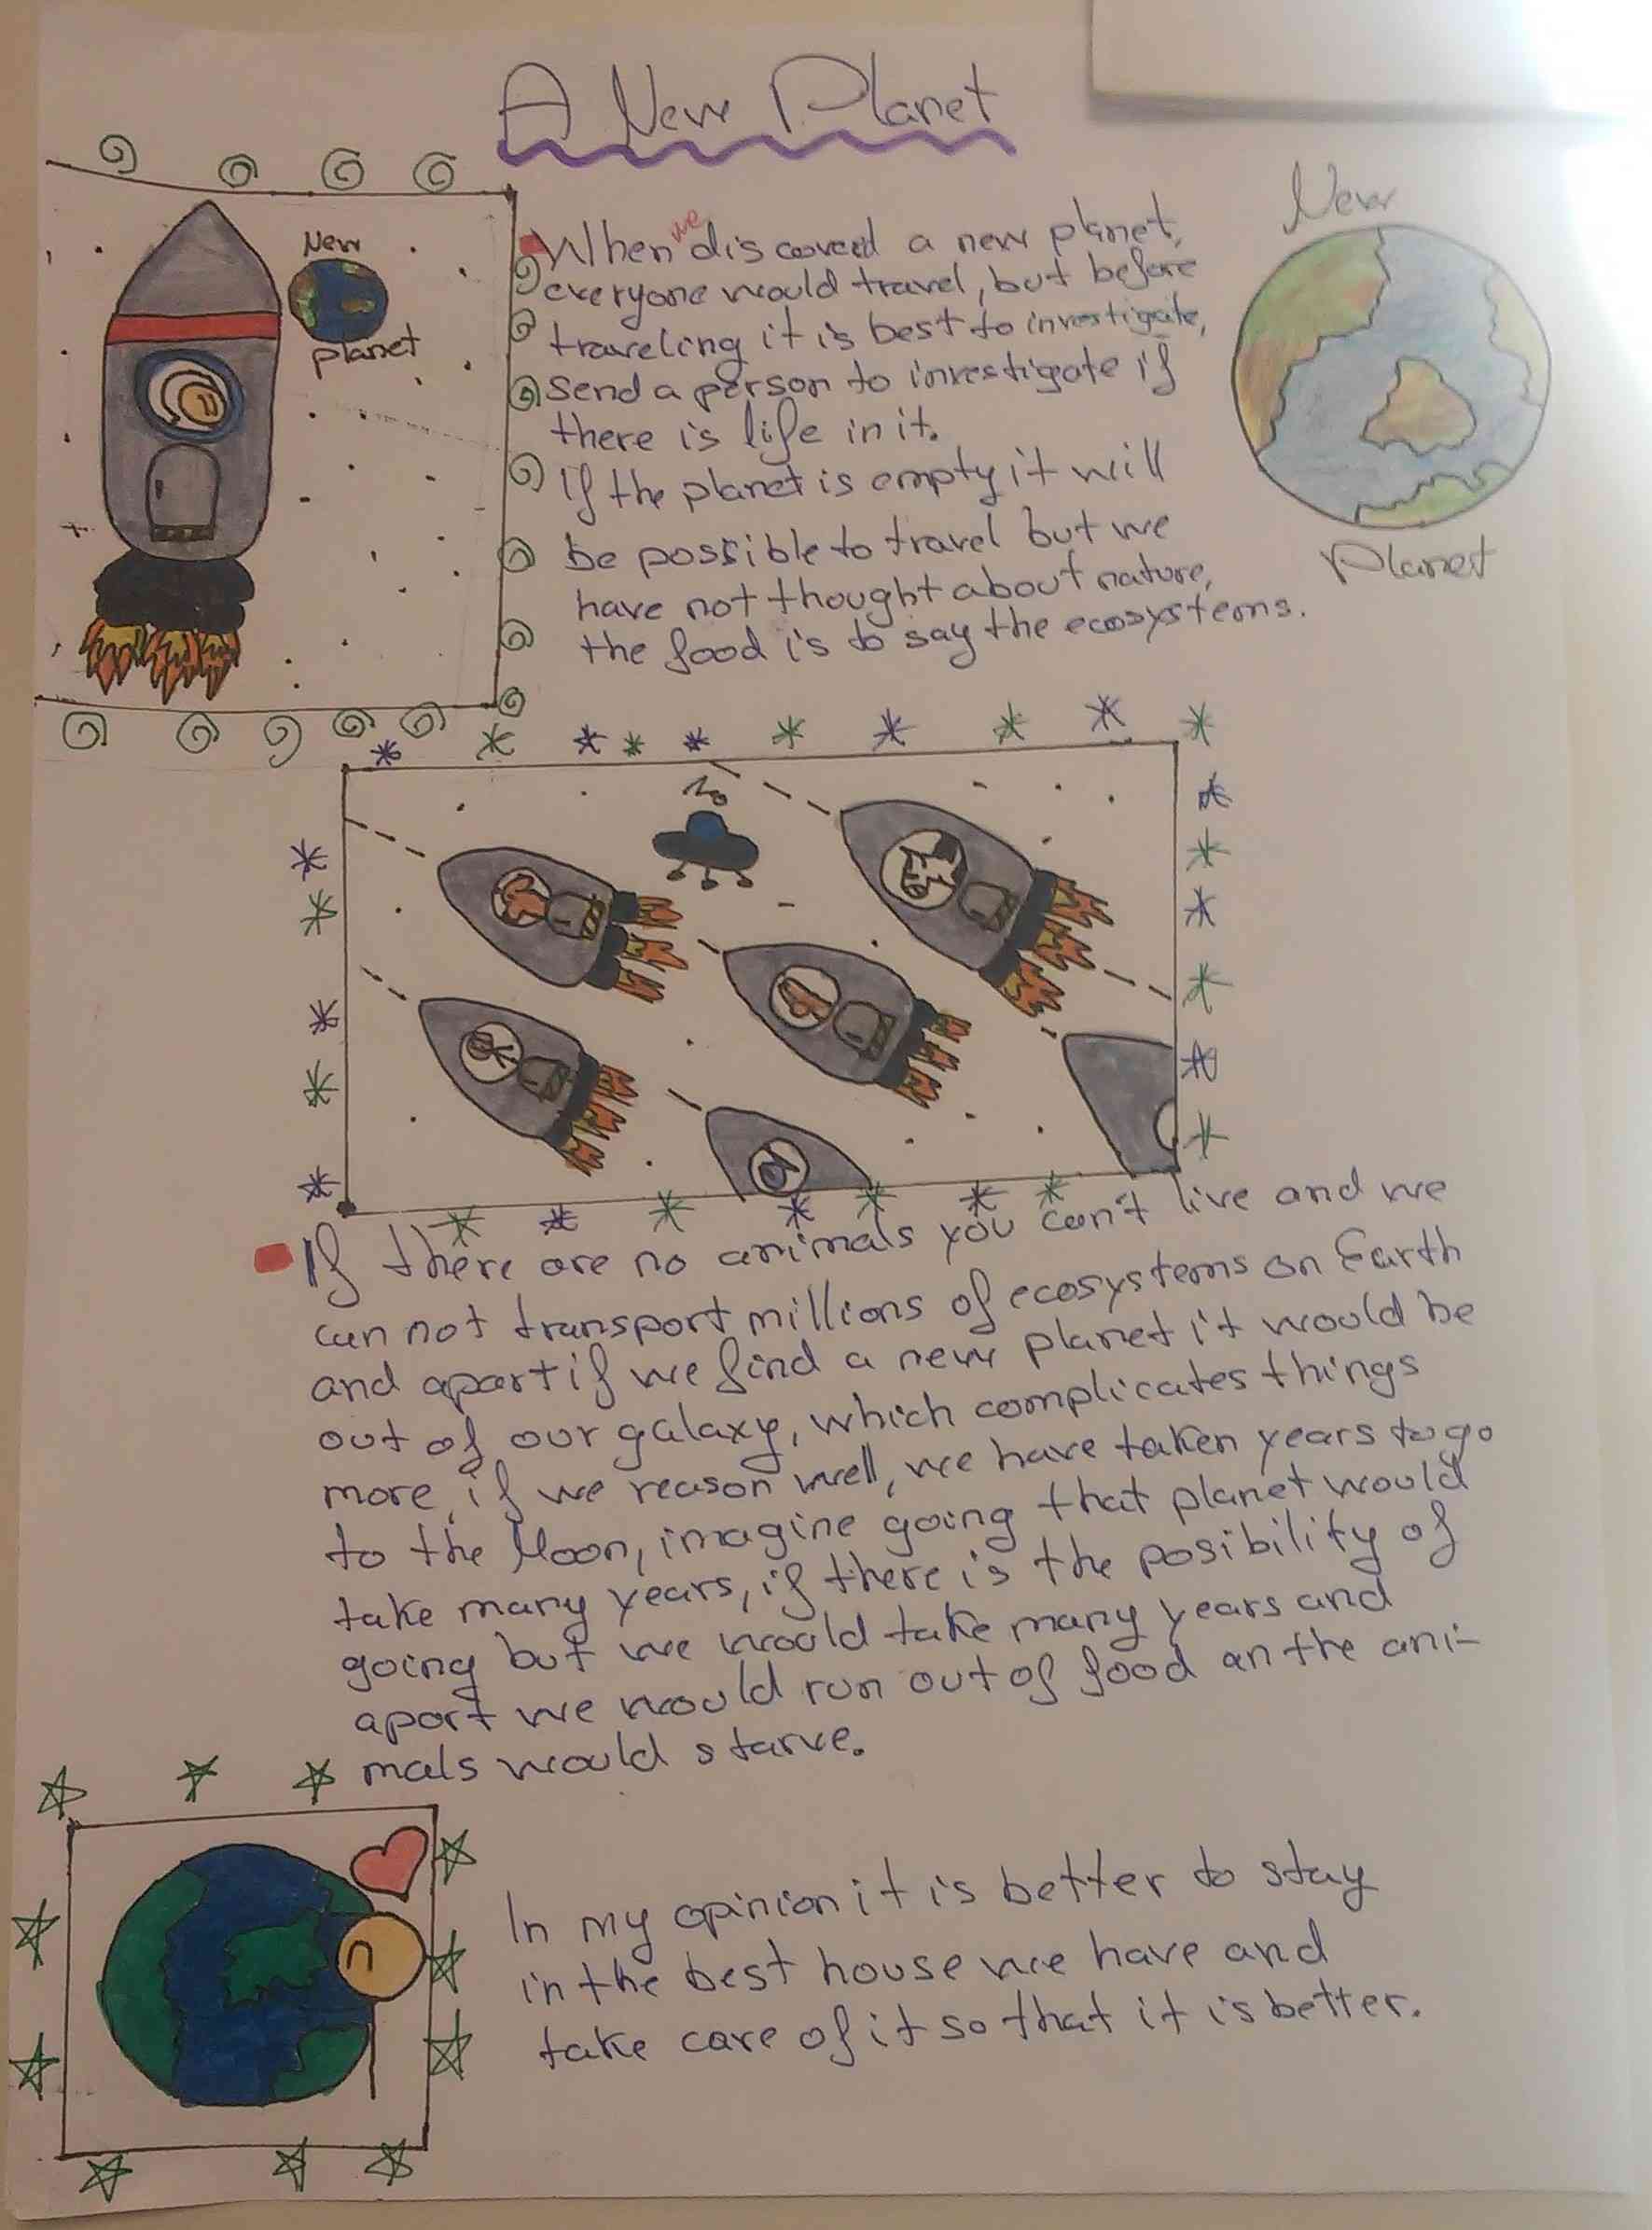 A New Planet
New
planet
When we discovered a new planet,
everyone would travel, but before
traveling it is best to investigate,
send a person to investigate if
there is life in it.
If the planet is empty it will
be possible to travel but we
have not thought about nature,
the food is to say the ecosystems.
New
Planet
If there are no animals you can't live and we
can not transport millions of ecosystems on Earth
and apart if we find a new planet it would be
out of our galaxy, which complicates things
more, if we reason well, we have taken years to go
to the Moon, imagine going that planet would
take many years, if there is the posibility of
going but we would take many years and
apart we would run out of food an the ani-
mals would starve.
In my opinion it is better to stay
in the best house we have and
take care of it so that it is better.